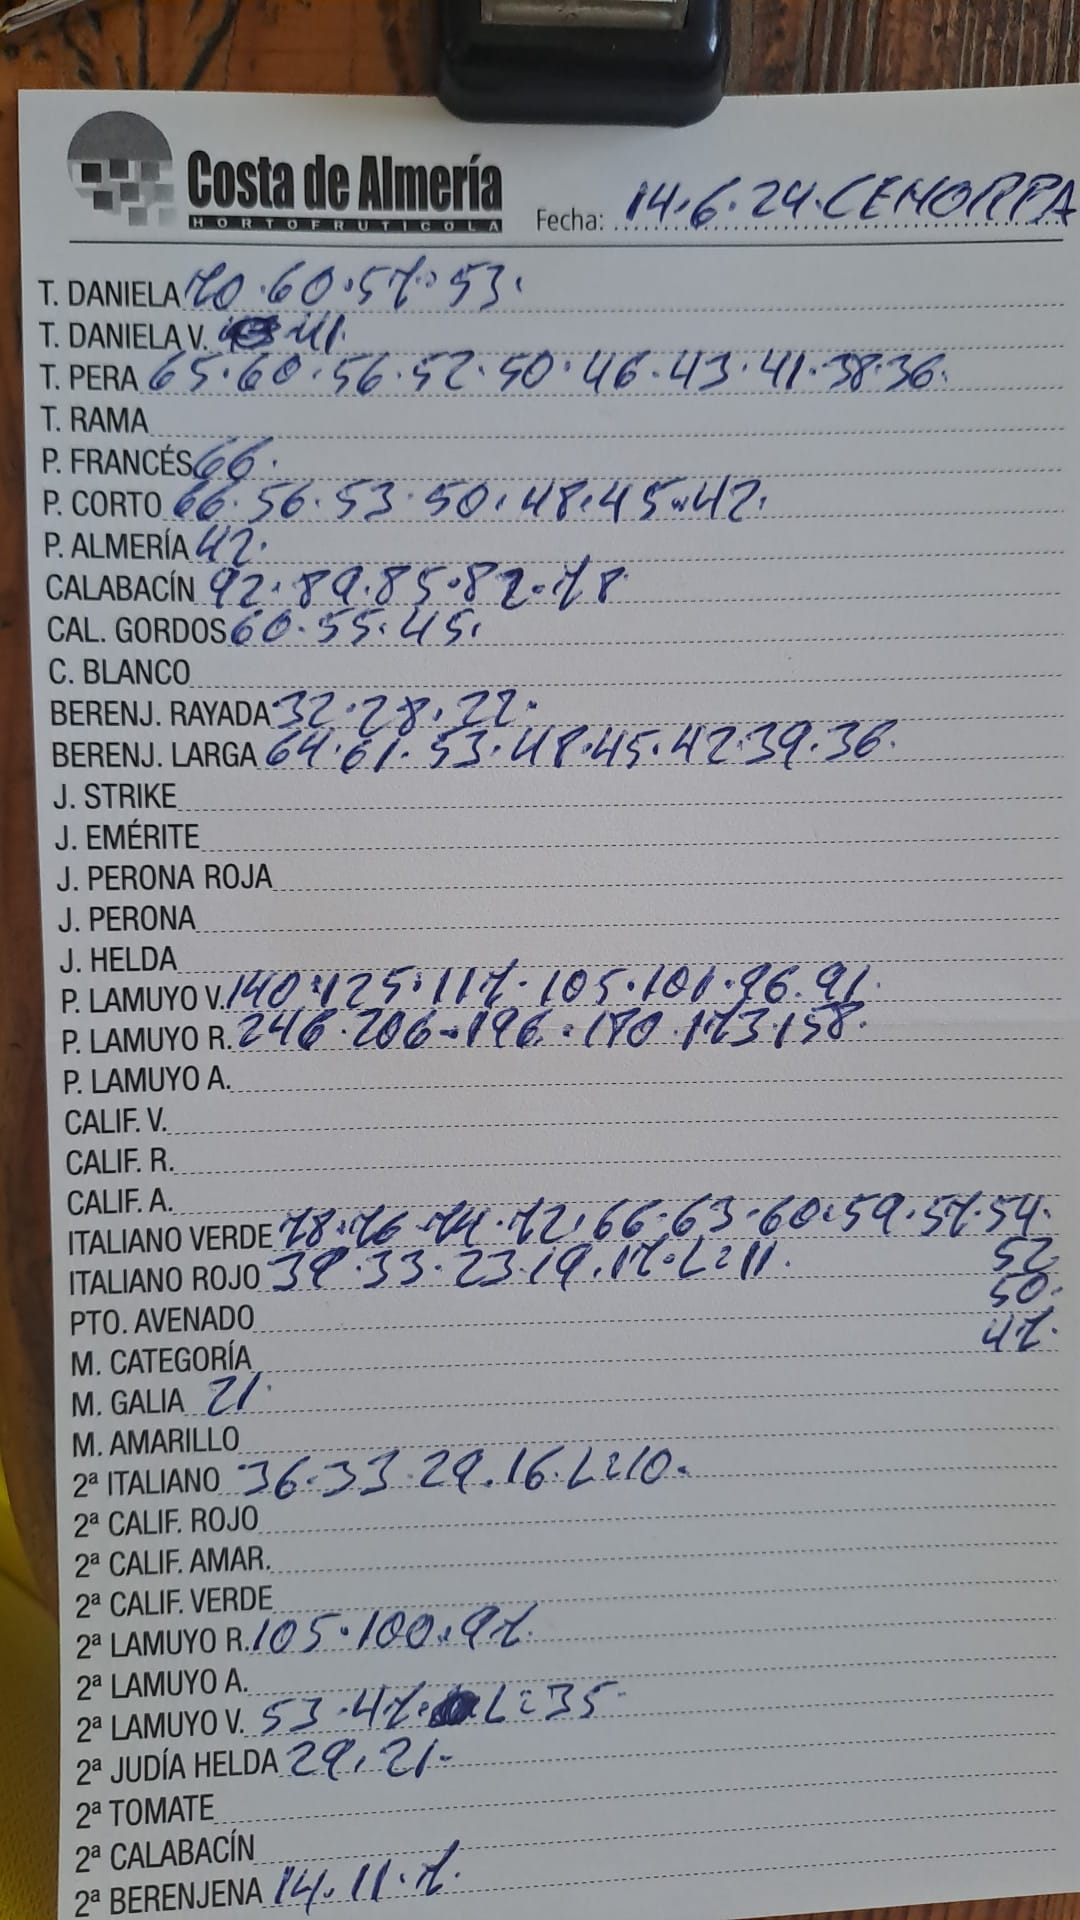 Costa de Almería
HORTOFRUTICOLA
Fecha: 14.6.24. CEHORPA
T. DANIELA 70.60.57.53.
T. DANIELA V. 41.
T. PERA 65.60.56.52.50.46.43.41.38.36.
T. RAMA
P. FRANCÉS 66.
P. CORTO 66.56.53.50.48.45.42.
P. ALMERÍA 42.
CALABACÍN 92.89.85.82.78
CAL. GORDOS 60.55.45.
C. BLANCO
BERENJ. RAYADA 32.28.22.
BERENJ. LARGA 64.61.53.48.45.42.39.36.
J. STRIKE
J. EMÉRITE
J. PERONA ROJA
J. PERONA
J. HELDA
P. LAMUYO V. 140.125.117.105.101.96.91.
P. LAMUYO R. 246.206.196.173.158.
P. LAMUYO A.
CALIF. V.
CALIF. R.
CALIF. A.
ITALIANO VERDE 78.76.74.72.66.63.60.59.57.54.
52.
50.
47.
ITALIANO ROJO 39.33.23.19.17.L=11.
PTO. AVENADO
M. CATEGORÍA
M. GALIA 21.
M. AMARILLO
2ª ITALIANO 36.33.29.16.L=10.
2ª CALIF. ROJO
2ª CALIF. AMAR.
2ª CALIF. VERDE
2ª LAMUYO R. 105.100.97.
2ª LAMUYO A.
2ª LAMUYO V. 53.47. L=35
2ª JUDÍA HELDA 29.21-
2ª TOMATE
2ª CALABACÍN
2ª BERENJENA 14.11.7.